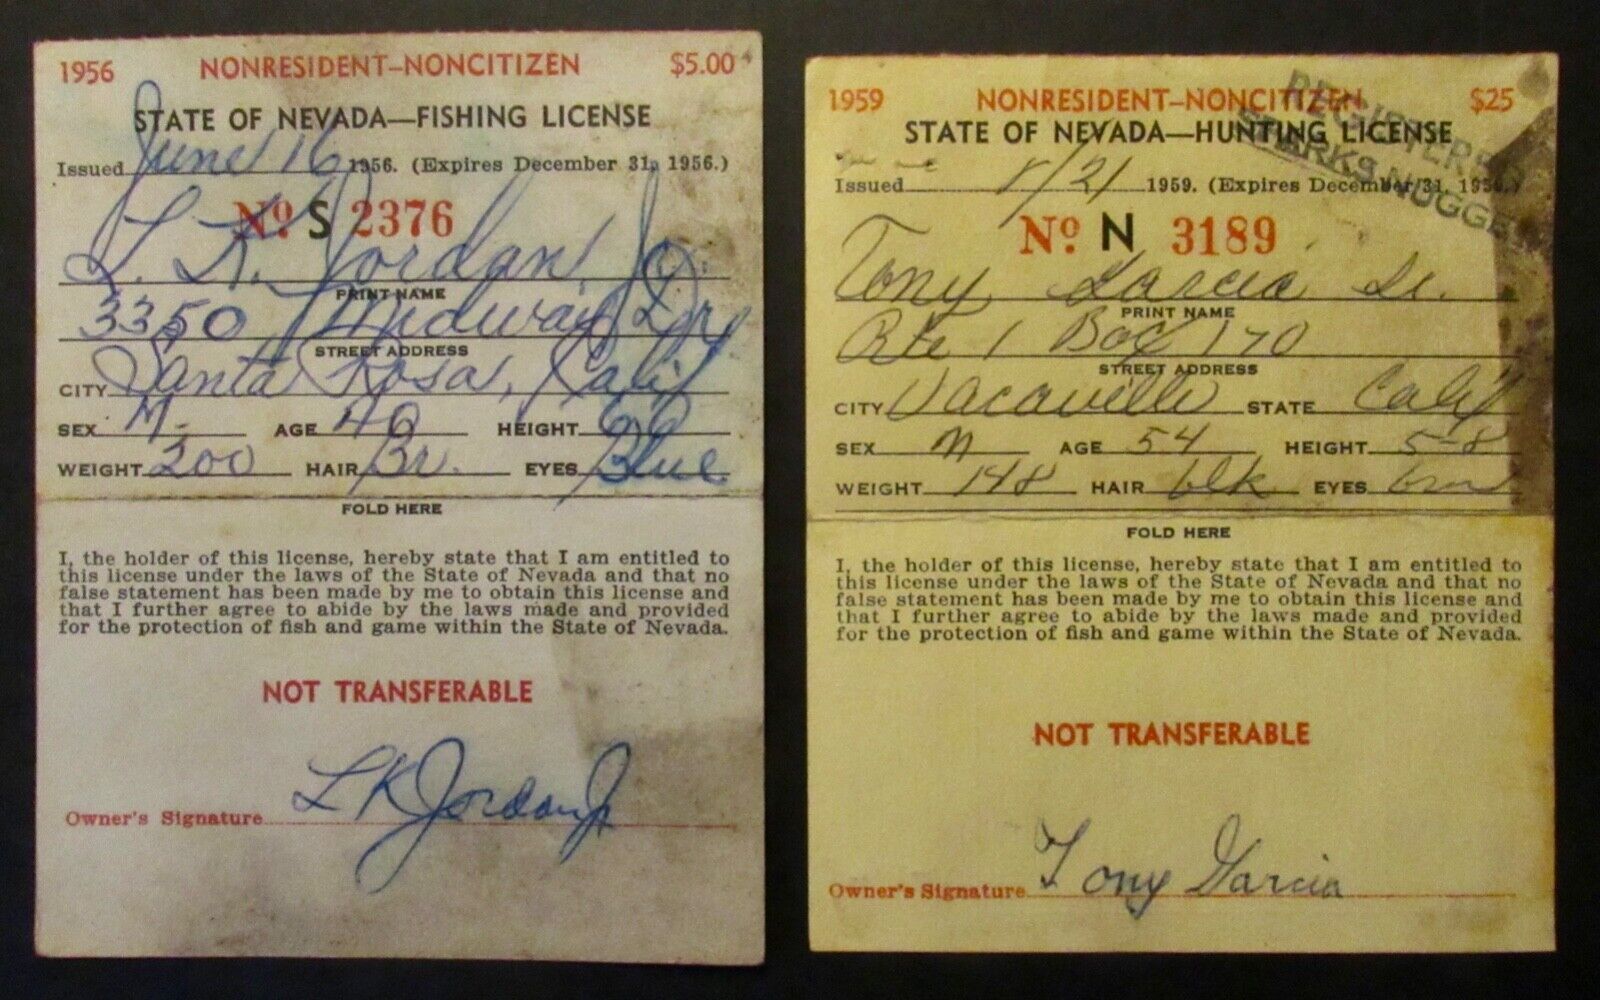 1956 NONRESIDENT–NONCITIZEN $5.00
STATE OF NEVADA—FISHING LICENSE
Issued June 16 1956. (Expires December 31, 1956.)
No. S 2376
L. K. Jordan, Jr.
PRINT NAME
3350 Midway Dr
STREET ADDRESS
CITY Santa Rosa, Calif
SEX M. AGE 40 HEIGHT 6'0
WEIGHT 200 HAIR Br. EYES Blue
FOLD HERE
I, the holder of this license, hereby state that I am entitled to
this license under the laws of the State of Nevada and that no
false statement has been made by me to obtain this license and
that I further agree to abide by the laws made and provided
for the protection of fish and game within the State of Nevada.
NOT TRANSFERABLE
Owner's Signature L K Jordan Jr
1959 NONRESIDENT–NONCITIZEN $25
STATE OF NEVADA—HUNTING LICENSE
REGISTERED
SPARKS NUGGET
Issued 8/21 1959. (Expires December 31, 1959.)
No. N 3189
Tony Garcia Sr.
PRINT NAME
Rte 1 Box 170
STREET ADDRESS
CITY Vacaville STATE Calif
SEX M AGE 54 HEIGHT 5-8
WEIGHT 148 HAIR blk EYES brn
FOLD HERE
I, the holder of this license, hereby state that I am entitled to
this license under the laws of the State of Nevada and that no
false statement has been made by me to obtain this license and
that I further agree to abide by the laws made and provided
for the protection of fish and game within the State of Nevada.
NOT TRANSFERABLE
Owner's Signature Tony Garcia